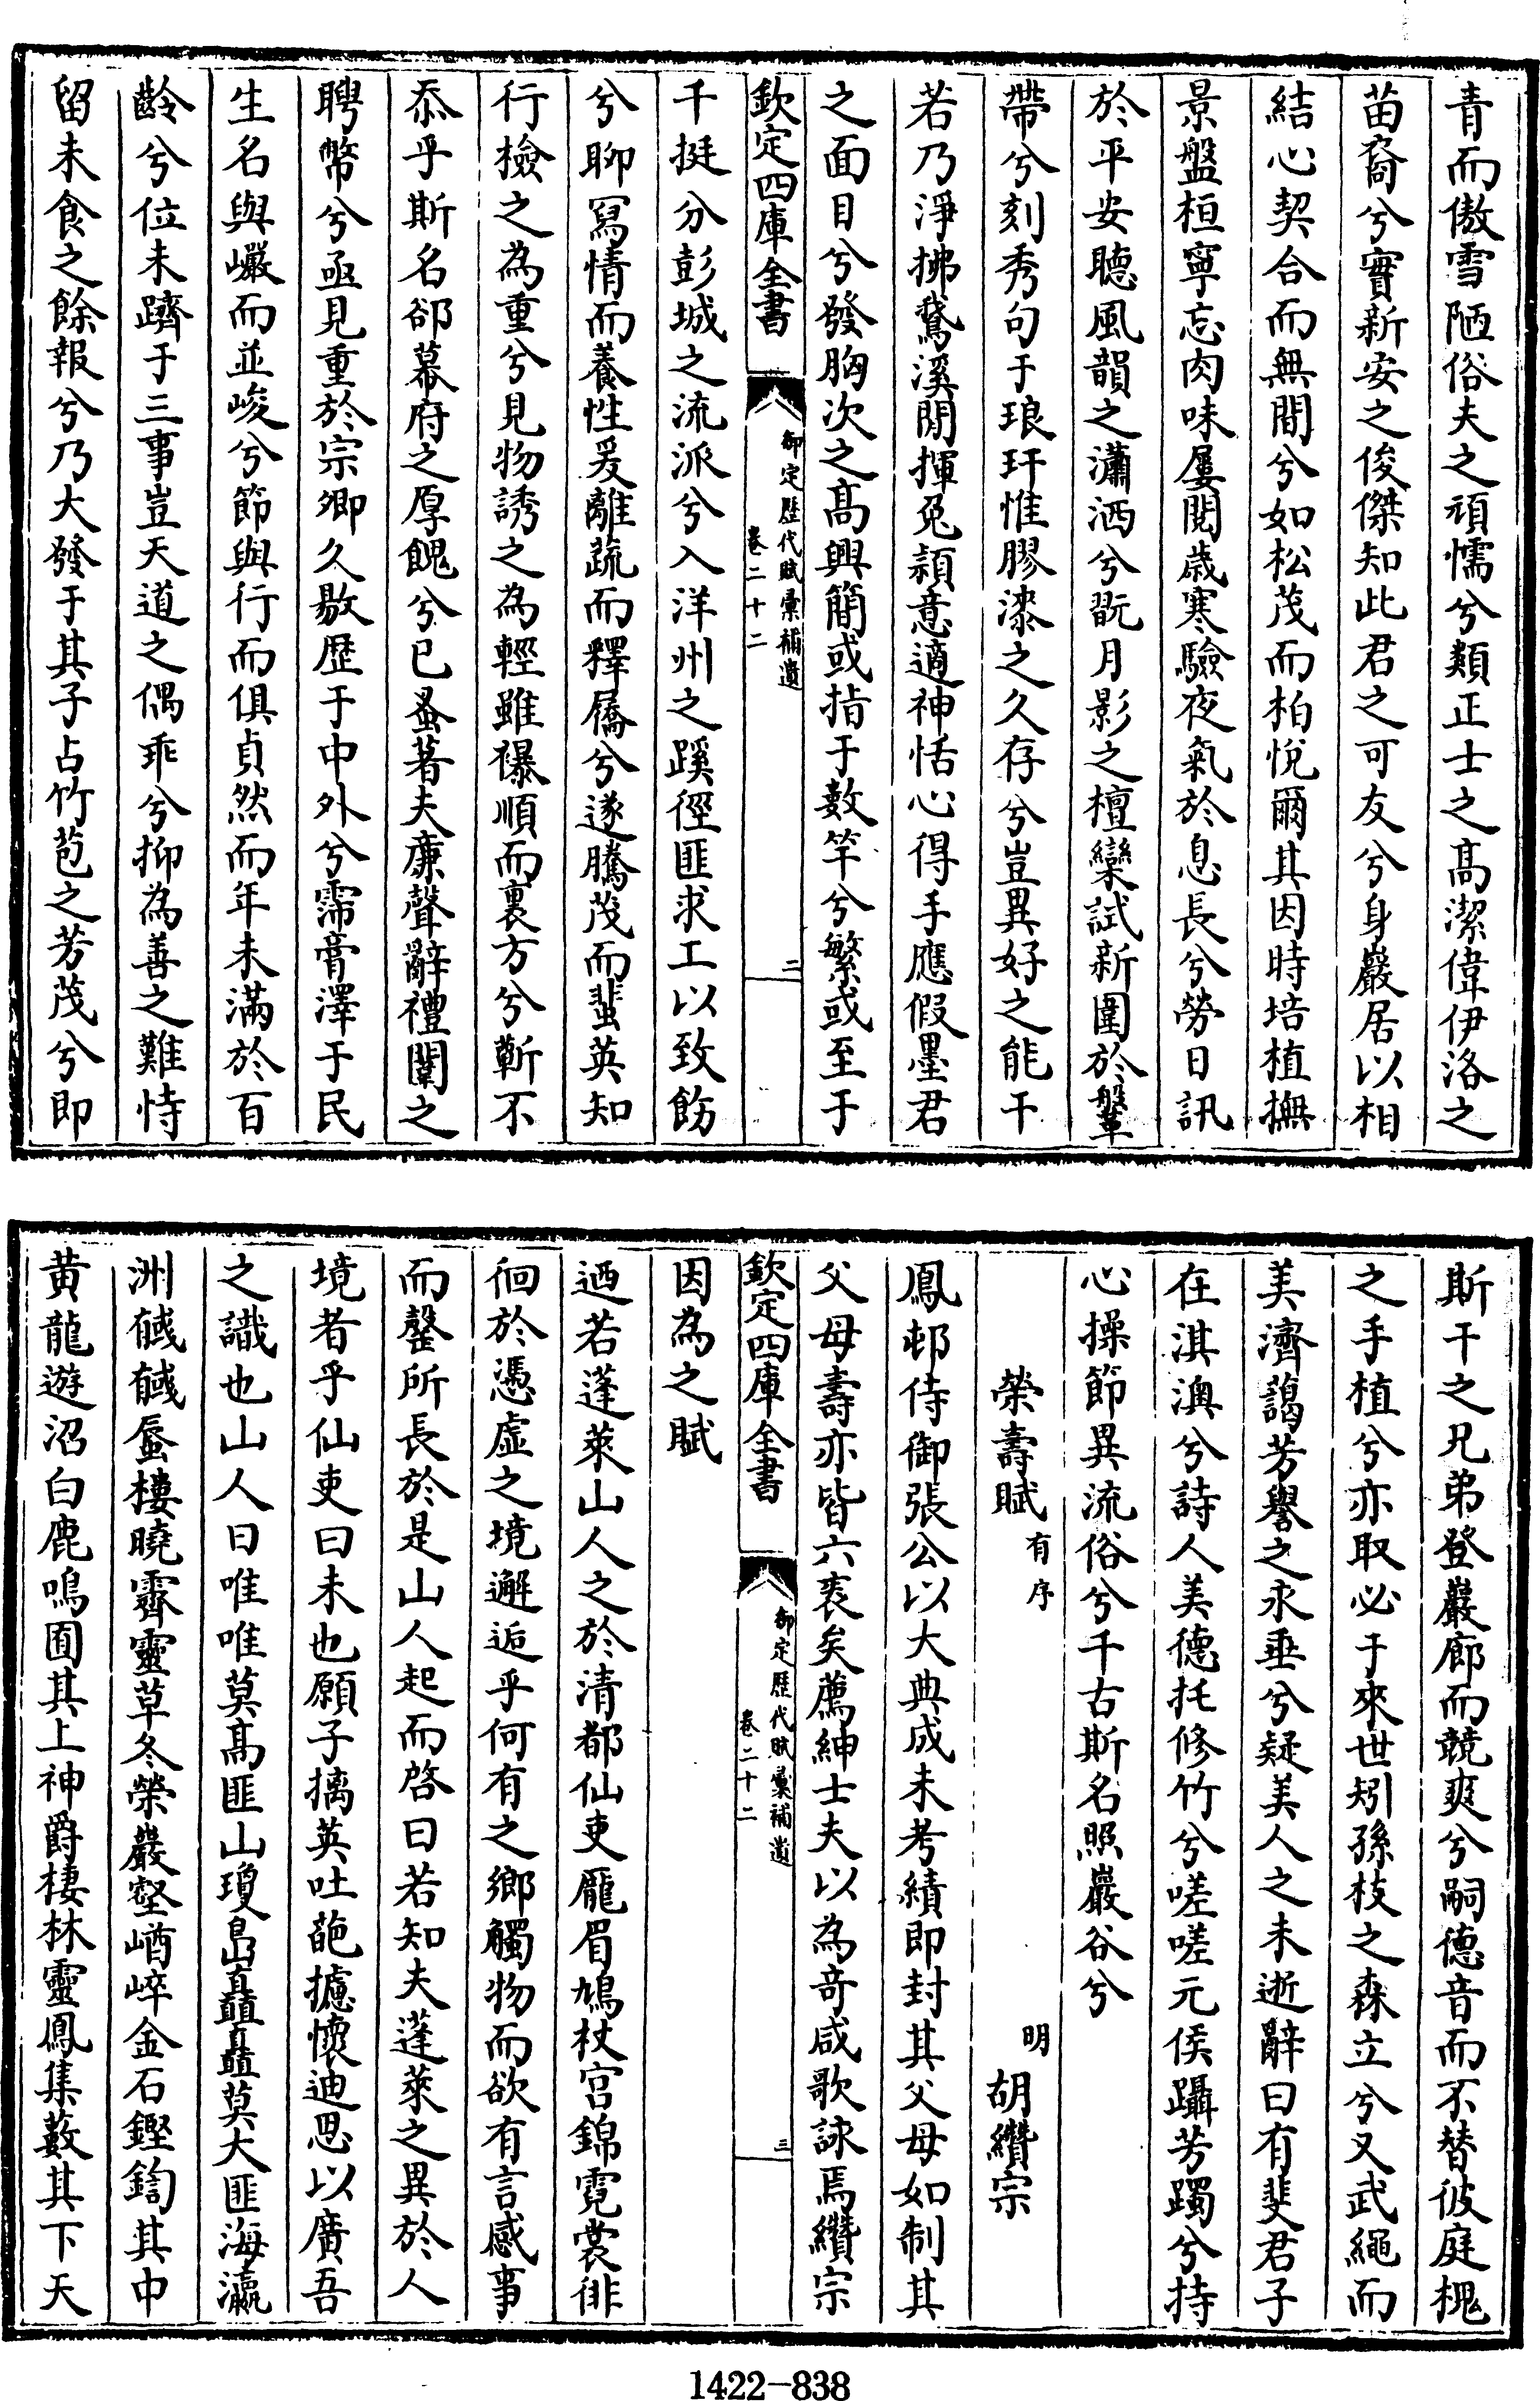 青而傲雪陋俗夫之頑懦兮類正士之髙潔偉伊洛之
苗裔兮實新安之俊傑知此君之可友兮身巖居以相
結心契合而無間兮如松茂而柏悅爾其因時培植撫
景盤桓寧忘肉味屢閱歲寒驗夜氣於息長兮勞日訊
於平安聽風韻之瀟洒兮翫月影之檀欒試新圍於鞶
帶兮刻秀句于琅玕惟膠漆之久存兮豈異好之能干
若乃淨拂鵞溪閒揮兔潁意適神恬心得手應假墨君
之面目兮發胸次之髙興簡或指于數竿兮繁或至于
欽定四庫全書
御定歷代賦彙補遺
卷二十二
二
千挺分彭城之流派兮入洋州之蹊徑匪求工以致飭
兮聊寫情而養性爰離蔬而釋屩兮遂騰茂而蜚英知
行檢之為重兮見物誘之為輕雖襮順而裏方兮靳不
忝乎斯名郤幕府之厚餽兮已蚤著夫亷聲辭禮闈之
聘幣兮亟見重於宗卿久敭歴于中外兮霈膏澤于民
生名與巖而並峻兮節與行而俱貞然而年未滿於百
齡兮位未躋于三事豈天道之偶乖兮抑為善之難恃
留未食之餘報兮乃大發于其子占竹苞之芳茂兮即
斯干之兄弟登巖廊而競爽兮嗣德音而不替彼庭槐
之手植兮亦取必于來世矧孫枝之森立兮又武繩而
美濟藹芳譽之永垂兮疑美人之未逝辭曰有斐君子
在淇澳兮詩人美德托修竹兮嗟嗟元侯躡芳躅兮持
心操節異流俗兮千古斯名照巖谷兮
榮壽賦 有序 明 胡纘宗
鳳邨侍御張公以大典成未考績即封其父母如制其
父母壽亦皆六袠矣薦紳士夫以為奇咸歌詠焉纘宗
欽定四庫全書
御定歷代賦彙補遺
卷二十二
三
因為之賦
迺若蓬萊山人之於清都仙吏厖眉鳩杖宫錦霓裳徘
徊於憑虛之境邂逅乎何有之鄉觸物而欲有言感事
而罄所長於是山人起而啓曰若知夫蓬萊之異於人
境者乎仙吏曰未也願子摛英吐葩攄懷迪思以廣吾
之識也山人曰唯唯莫髙匪山瓊島矗矗莫大匪海瀛
洲㦽㦽蜃樓曉霽靈草冬榮巖壑崷崒金石鏗鍧其中
黄龍遊沼白鹿鳴囿其上神爵棲林靈鳳集藪其下天
1422-838